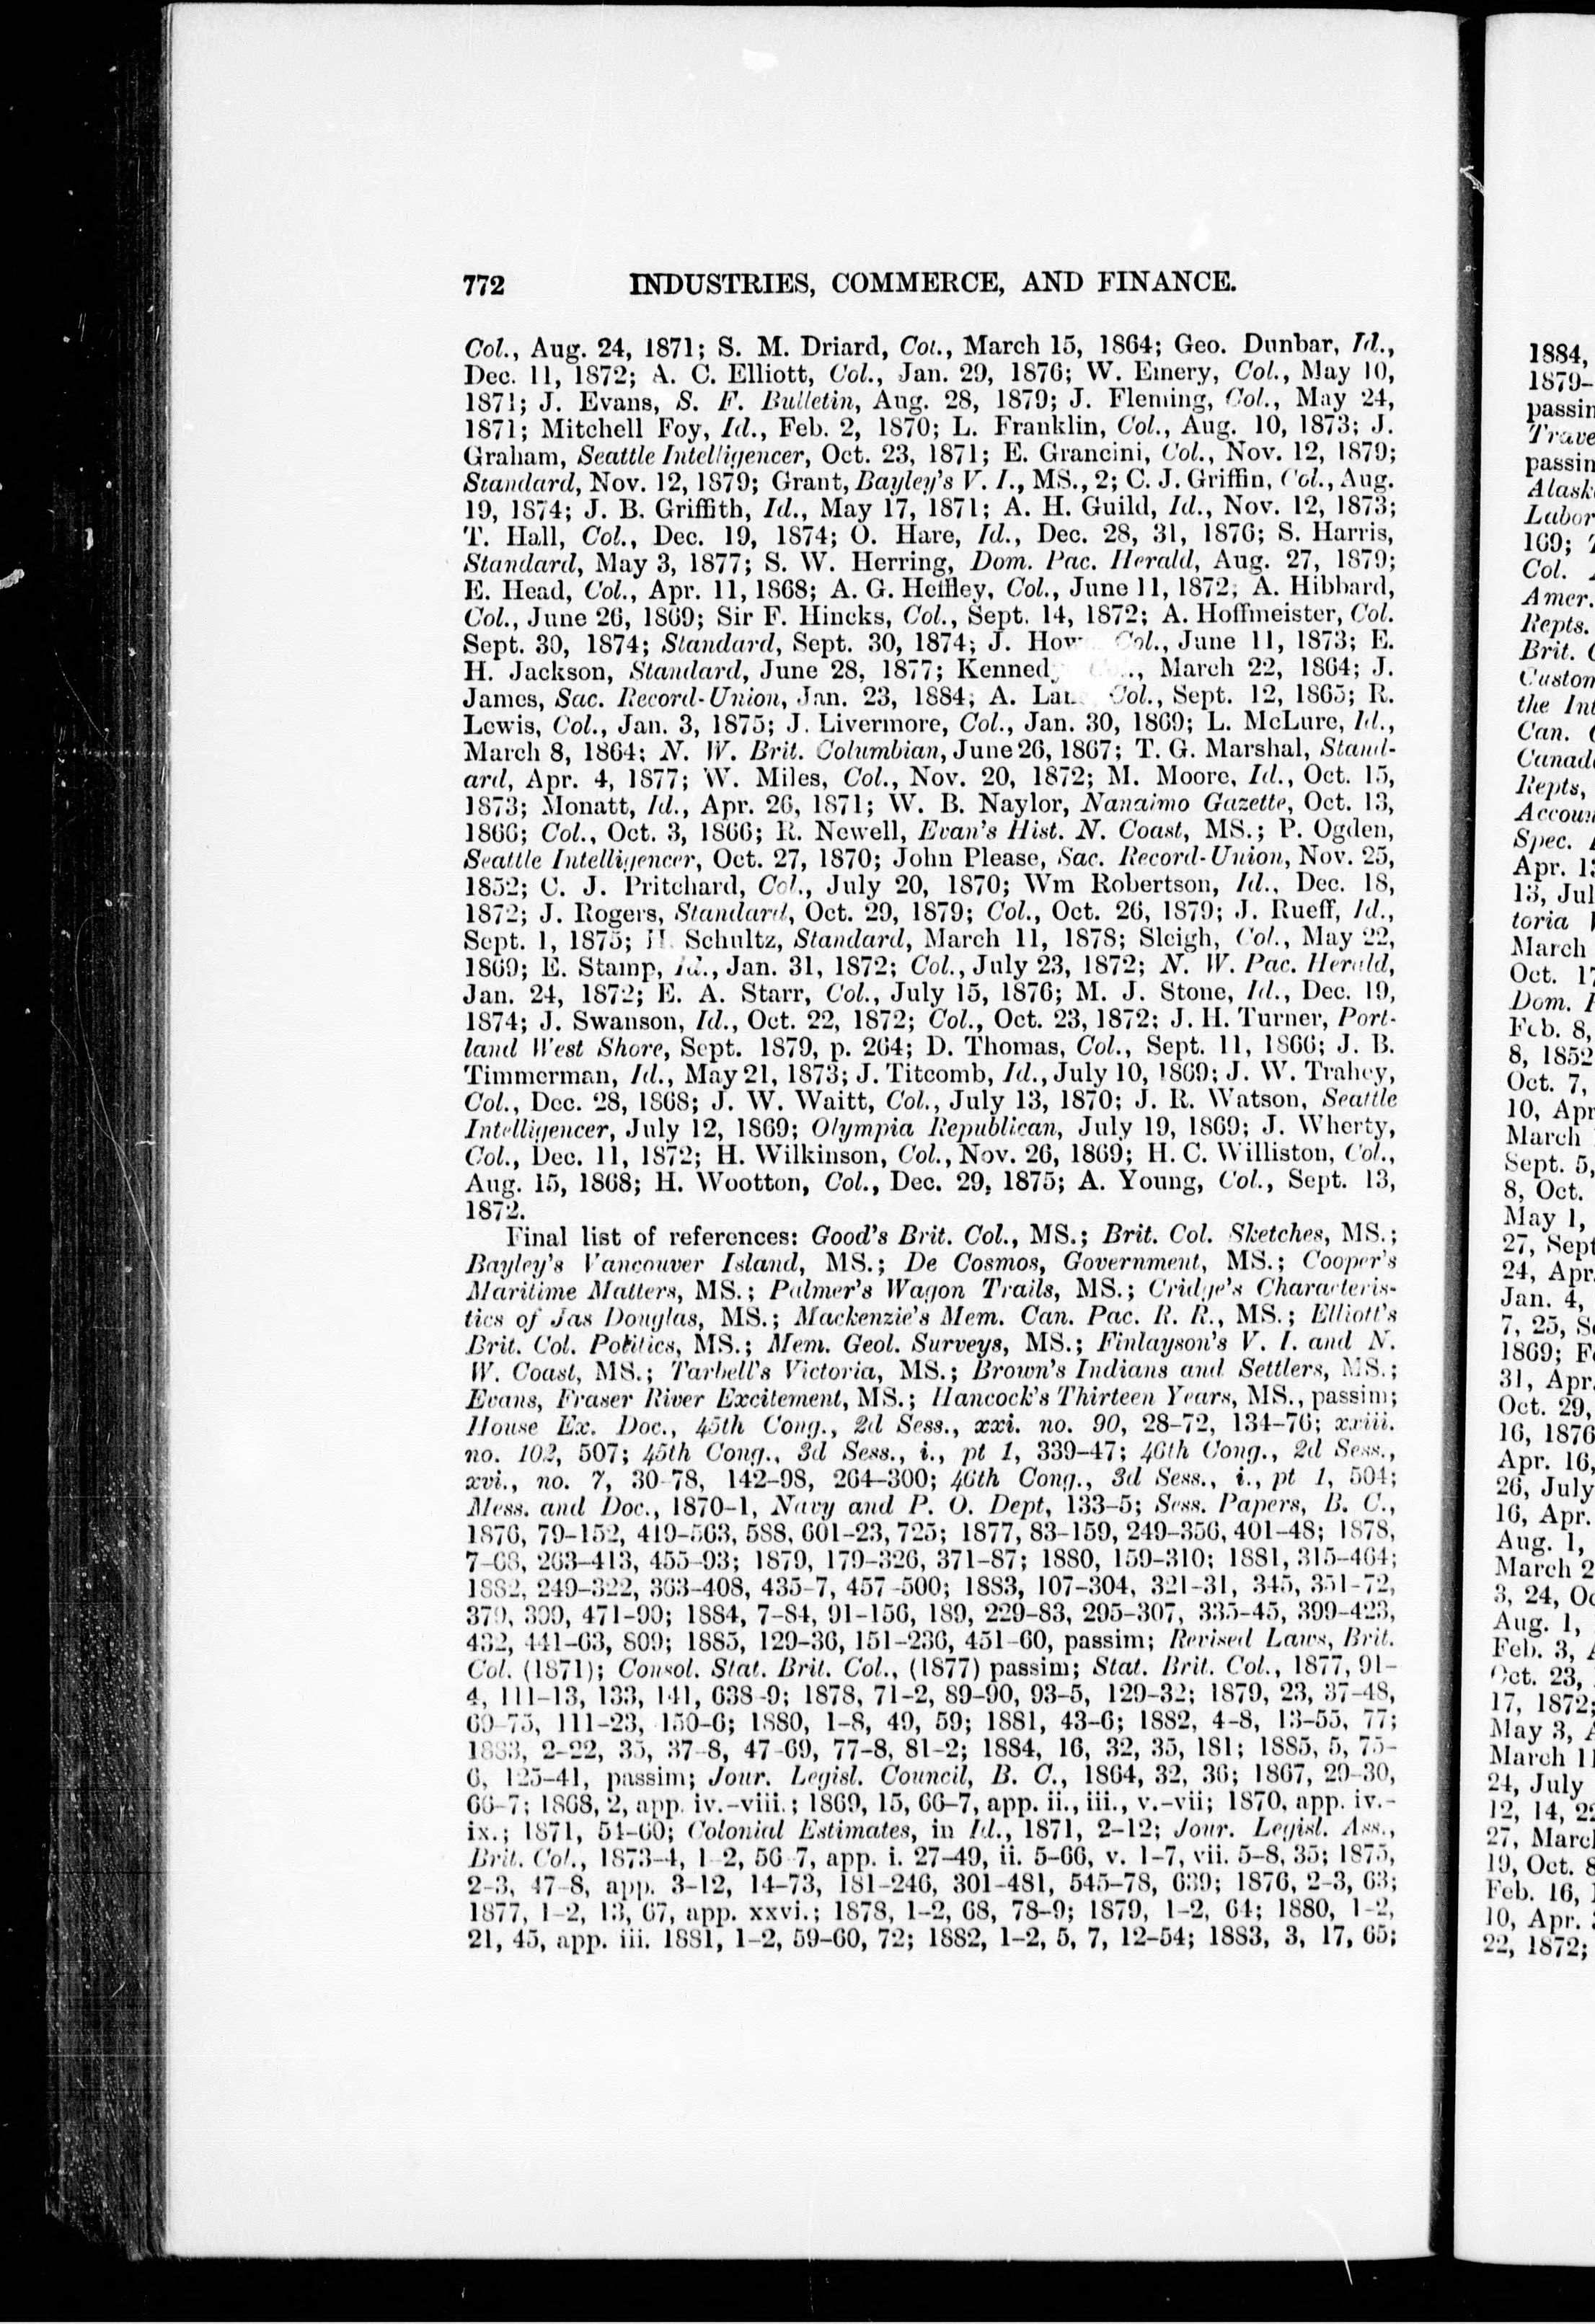 772 INDUSTRIES, COMMERCE, AND FINANCE.
Col., Aug. 24, 1871; S. M. Driard, Col., March 15, 1864; Geo. Dunbar, Id.,
Dec. 11, 1872; A. C. Elliott, Col., Jan. 29, 1876; W. Emery, Col., May 10,
1871; J. Evans, S. F. Bulletin, Aug. 28, 1879; J. Fleming, Col., May 24,
1871; Mitchell Foy, Id., Feb. 2, 1870; L. Franklin, Col., Aug. 10, 1873; J.
Graham, Seattle Intelligencer, Oct. 23, 1871; E. Grancini, Col., Nov. 12, 1879;
Standard, Nov. 12, 1879; Grant, Bayley's V. I., MS., 2; C. J. Griffin, Col., Aug.
19, 1874; J. B. Griffith, Id., May 17, 1871; A. H. Guild, Id., Nov. 12, 1873;
T. Hall, Col., Dec. 19, 1874; O. Hare, Id., Dec. 28, 31, 1876; S. Harris,
Standard, May 3, 1877; S. W. Herring, Dom. Pac. Herald, Aug. 27, 1879;
E. Head, Col., Apr. 11, 1868; A. G. Heffley, Col., June 11, 1872; A. Hibbard,
Col., June 26, 1869; Sir F. Hincks, Col., Sept. 14, 1872; A. Hoffmeister, Col.
Sept. 30, 1874; Standard, Sept. 30, 1874; J. Col., June 11, 1873; E.
H. Jackson, Standard, June 28, 1877; March 22, 1864; J.
James, Sac. Record-Union, Jan. 23, 1884; A. Col., Sept. 12, 1865; R.
Lewis, Col., Jan. 3, 1875; J. Livermore, Col., Jan. 30, 1869; L. McLure, Id.,
March 8, 1864; N. W. Brit. Columbian, June 26, 1867; T. G. Marshal, Stand-
ard, Apr. 4, 1877; W. Miles, Col., Nov. 20, 1872; M. Moore, Id., Oct. 15,
1873; Monatt, Id., Apr. 26, 1871; W. B. Naylor, Nanaimo Gazette, Oct. 13,
1866; Col., Oct. 3, 1866; R. Newell, Evan's Hist. N. Coast, MS.; P. Ogden,
Seattle Intelligencer, Oct. 27, 1870; John Please, Sac. Record-Union, Nov. 25,
1852; C. J. Pritchard, Col., July 20, 1870; Wm Robertson, Id., Dec. 18,
1872; J. Rogers, Standard, Oct. 29, 1879; Col., Oct. 26, 1879; J. Rueff, Id.,
Sept. 1, 1875; H. Schultz, Standard, March 11, 1878; Sleigh, Col., May 22,
1869; E. Stamp, Id., Jan. 31, 1872; Col., July 23, 1872; N. W. Pac. Herald,
Jan. 24, 1872; E. A. Starr, Col., July 15, 1876; M. J. Stone, Id., Dec. 19,
1874; J. Swanson, Id., Oct. 22, 1872; Col., Oct. 23, 1872; J. H. Turner, Port-
land West Shore, Sept. 1879, p. 264; D. Thomas, Col., Sept. 11, 1866; J. B.
Timmerman, Id., May 21, 1873; J. Titcomb, Id., July 10, 1869; J. W. Trahey,
Col., Dec. 28, 1868; J. W. Waitt, Col., July 13, 1870; J. R. Watson, Seattle
Intelligencer, July 12, 1869; Olympia Republican, July 19, 1869; J. Wherty,
Col., Dec. 11, 1872; H. Wilkinson, Col., Nov. 26, 1869; H. C. Williston, Col.,
Aug. 15, 1868; H. Wootton, Col., Dec. 29, 1875; A. Young, Col., Sept. 13,
1872.
Final list of references: Good's Brit. Col., MS.; Brit. Col. Sketches, MS.;
Bayley's Vancouver Island, MS.; De Cosmos, Government, MS.; Cooper's
Maritime Matters, MS.; Palmer's Wagon Trails, MS.; Cridge's Characteris-
tics of Jas Douglas, MS.; Mackenzie's Mem. Can. Pac. R. R., MS.; Elliott's
Brit. Col. Politics, MS.; Mem. Geol. Surveys, MS.; Finlayson's V. I. and N.
W. Coast, MS.; Tarbell's Victoria, MS.; Brown's Indians and Settlers, MS.;
Evans, Fraser River Excitement, MS.; Hancock's Thirteen Years, MS., passim;
House Ex. Doc., 45th Cong., 2d Sess., xxi. no. 90, 28-72, 134-76; xxiii.
no. 102, 507; 45th Cong., 3d Sess., i., pt 1, 339-47; 46th Cong., 2d Sess.,
xvi., no. 7, 30-78, 142-98, 264-300; 46th Cong., 3d Sess., i., pt 1, 504;
Mess. and Doc., 1870-1, Navy and P. O. Dept, 133-5; Sess. Papers, B. C.,
1876, 79-152, 419-563, 588, 601-23, 725; 1877, 83-159, 249-356, 401-48; 1878,
7-68, 263-413, 455-93; 1879, 179-326, 371-87; 1880, 159-310; 1881, 315-464;
1882, 249-322, 363-408, 435-7, 457-500; 1883, 107-304, 321-31, 345, 351-72,
379, 399, 471-90; 1884, 7-84, 91-156, 189, 229-83, 295-307, 335-45, 399-423,
432, 441-63, 809; 1885, 129-36, 151-236, 451-60, passim; Revised Laws, Brit.
Col. (1871); Consol. Stat. Brit. Col., (1877) passim; Stat. Brit. Col., 1877, 91-
4, 111-13, 133, 141, 638-9; 1878, 71-2, 89-90, 93-5, 129-32; 1879, 23, 37-48,
69-75, 111-23, 150-6; 1880, 1-8, 49, 59; 1881, 43-6; 1882, 4-8, 13-55, 77;
1883, 2-22, 35, 37-8, 47-69, 77-8, 81-2; 1884, 16, 32, 35, 181; 1885, 5, 75-
6, 125-41, passim; Jour. Legisl. Council, B. C., 1864, 32, 36; 1867, 29-30,
66-7; 1868, 2, app. iv.-viii.; 1869, 15, 66-7, app. ii., iii., v.-vii; 1870, app. iv.-
ix.; 1871, 54-60; Colonial Estimates, in Id., 1871, 2-12; Jour. Legisl. Ass.,
Brit. Col., 1873-4, 1-2, 56-7, app. i. 27-49, ii. 5-66, v. 1-7, vii. 5-8, 35; 1875,
2-3, 47-8, app. 3-12, 14-73, 181-246, 301-481, 545-78, 639; 1876, 2-3, 63;
1877, 1-2, 13, 67, app. xxvi.; 1878, 1-2, 68, 78-9; 1879, 1-2, 64; 1880, 1-2,
21, 45, app. iii. 1881, 1-2, 59-60, 72; 1882, 1-2, 5, 7, 12-54; 1883, 3, 17, 65;
1884,
1879-
169;
Col.
Amer.
Repts.
Brit.
the Int
Can.
Repts,
Spec.
Apr.
toria
March
Oct. 17
Dom.
Feb. 8,
8, 1852
Oct. 7,
10, Apr
March
Sept. 5,
8, Oct.
May 1,
27, Sept
24, Apr.
Jan. 4,
7, 25,
1869;
31, Apr.
Oct. 29,
16, 1876
Apr. 16,
26, July
16, Apr.
Aug. 1,
March 2
3, 24,
Aug. 1,
Feb. 3,
Oct. 23,
17, 1872;
May 3,
March 11
24, July
12, 14,
27,
19, Oct.
Feb. 16,
10, Apr.
22, 1872;